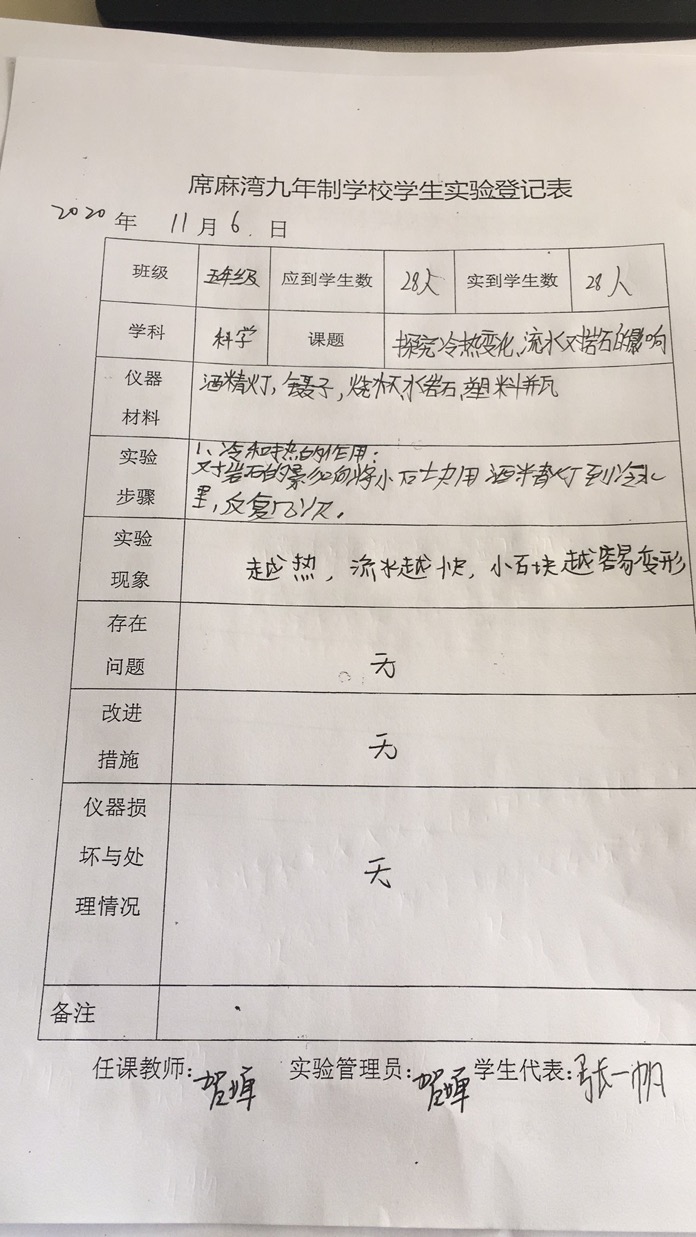 席麻湾九年制学校学生实验登记表
2020 年 11 月 6 . 日
班级 五年级 应到学生数 28人 实到学生数 28人
学科 科学 课题 探究冷热变化、流水对岩石的影响
仪器材料 酒精灯, 镊子, 烧杯, 水岩石, 塑料瓶
实验步骤 1、冷和热的作用:
对岩石的影响将小石块用酒精灯到冷水
里, 反复几次.
实验现象 越热, 流水越快, 小石块越容易变形
存在问题 无
改进措施 无
仪器损坏与处理情况 无
备注
任课教师: 实验管理员: 学生代表: 张一帆